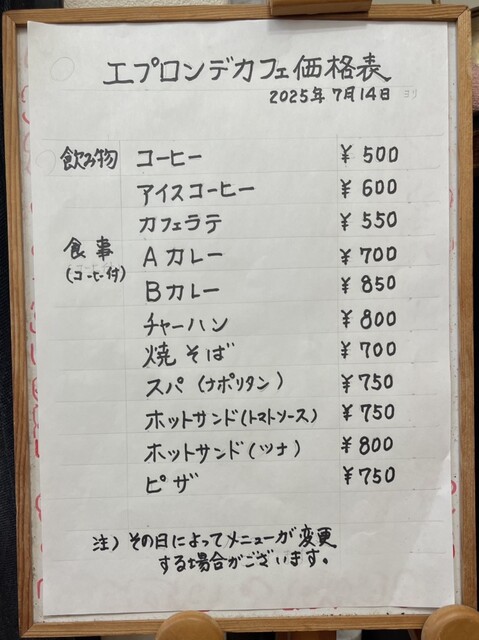 エプロンデカフェ価格表
2025年7月14日 ヨリ
飲み物 コーヒー ¥500
アイスコーヒー ¥600
カフェラテ ¥550
食事 Aカレー ¥700
(コーヒー付) Bカレー ¥850
チャーハン ¥800
焼そば ¥700
スパ(ナポリタン) ¥750
ホットサンド(トマトソース) ¥750
ホットサンド(ツナ) ¥800
ピザ ¥750
注)その日によってメニューが変更
する場合がございます。